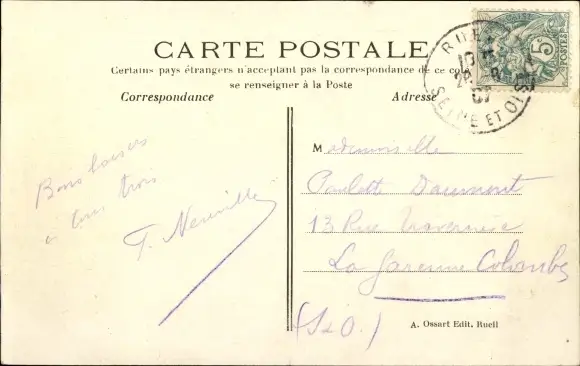 CARTE POSTALE
Certains pays étrangers n'acceptant pas la correspondance de ce co
se renseigner à la Poste
Correspondance
Adresse
RUE
SEINE ET OISE
5c
POSTES
Bons baisers
à tous trois
T. Neuville
Mademoiselle
Paulette Daumont
13 Rue Traversière
La Garenne Colombes
(S&O.)
A. Ossart Edit, Rueil